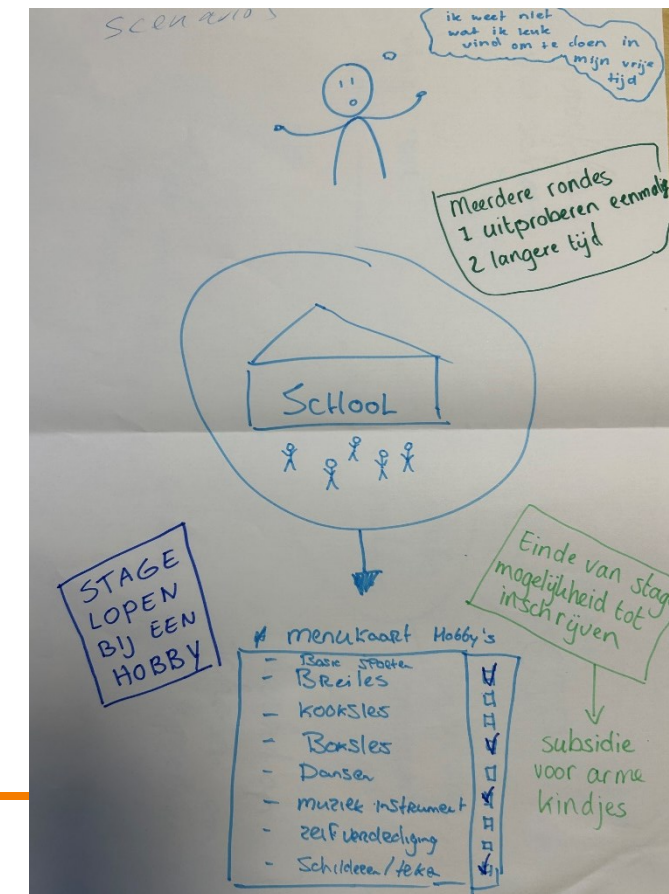 scenarios
ik weet niet
wat ik leuk
vind om te doen in
mijn vrije
tijd
Meerdere rondes
1 uitproberen eenmalig
2 langere tijd
SCHOOL
STAGE
LOPEN
BIJ EEN
HOBBY
Einde van stage
mogelijkheid tot
inschrijven
subsidie
voor arme
kindjes
menukaart Hobby's
- Basic sporten
- BReiles
- kooksles
- Boksles
- Dansen
- muziek instrument
- zelfverdediging
- Schilderen / teken